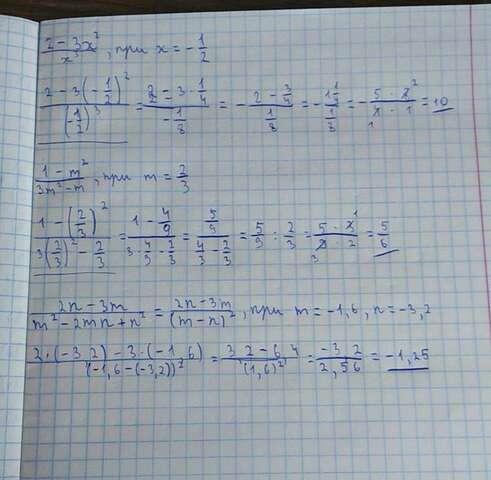 (2 - 3x²)/x³, при x = -1/2
(2 - 3(-1/2)²)/(-1/2)³ = (2 - 3·1/4)/(-1/8) = -(2 - 3/4)/(1/8) = -(1 1/4)/(1/8) = -(5 · 8²)/(4₁ · 1) = 10
(1 - m²)/(3m² - m), при m = 2/3
(1 - (2/3)²)/(3(2/3)² - 2/3) = (1 - 4/9)/(3·4/9 - 2/3) = (5/9)/(4/3 - 2/3) = 5/9 : 2/3 = (5 · 3¹)/(9₃ · 2) = 5/6
(2n - 3m)/(m² - 2mn + n²) = (2n - 3m)/(m - n)², при m = -1,6, n = -3,2
(2·(-3,2) - 3·(-1,6))/(-1,6 - (-3,2))² = (3,2 - 6,4)/(1,6)² = (-3,2)/(2,56) = -1,25